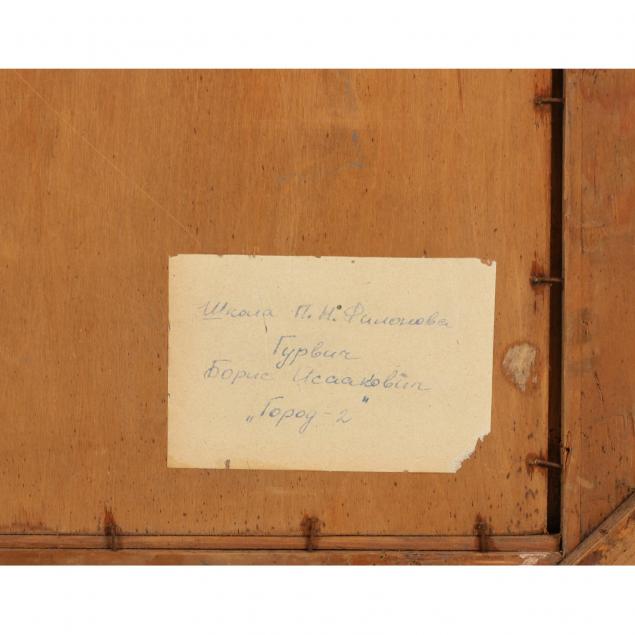 Школа П. Н. Филонова
Гурвич
Борис Исаакович
„Город-2"